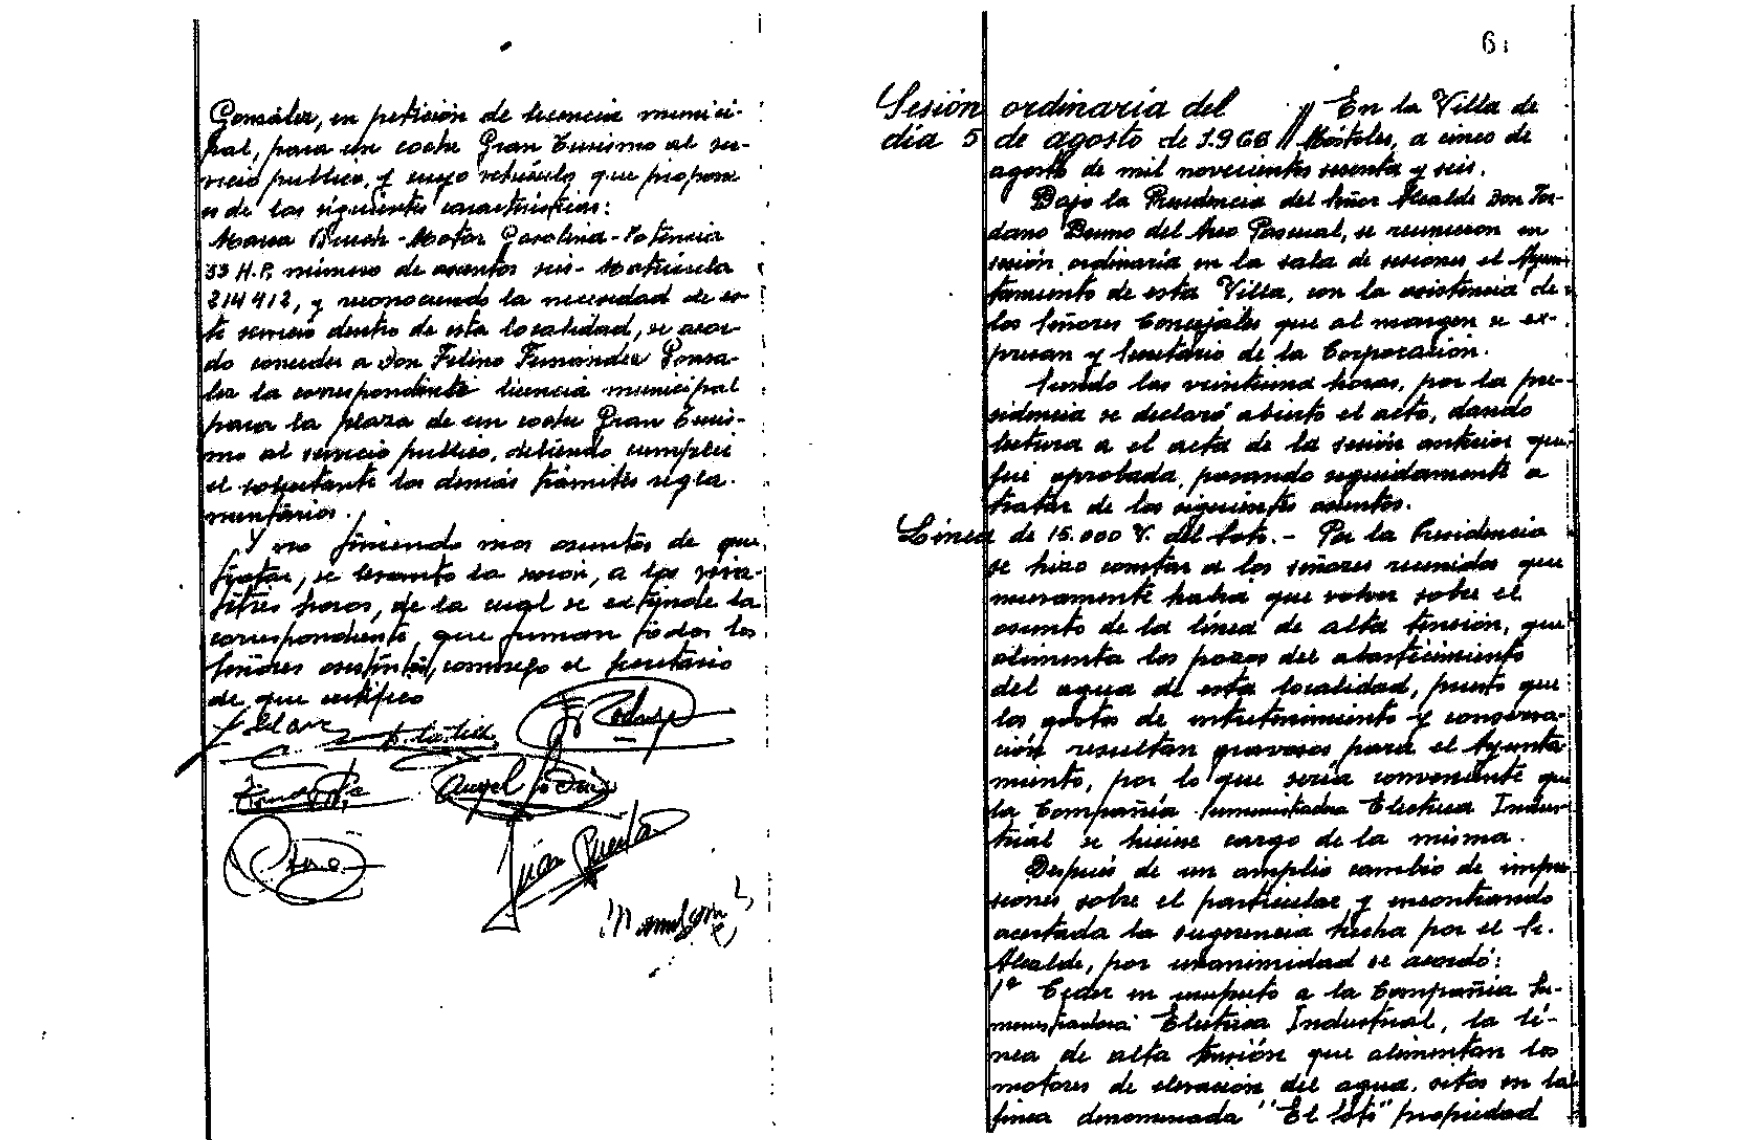 González, en petición de licencia munici-
pal, para un coche Gran Turismo al ser-
vicio publico, y cuyo vehículo que propone
es de las siguientes caracteristicas:
Marca Buick - Motor Gasolina - Potencia
33 H.P. número de asientos seis - Matricula
214412, y reconociendo la necesidad de es-
te servicio dentro de esta localidad, se acor-
do conceder a Don Felino Fernández Gonza-
lez la correspondiente licencia municipal
para la plaza de un coche Gran Turis-
mo al servicio publico, debiendo cumplir
el solicitante los demás trámites regla-
mentarios.
Y no habiendo mas asuntos de que
tratar, se levanto la sesion, a las vein-
titres horas, de la cual se extiende la
correspondiente, que firman todos los
Señores asistentes, conmigo el Secretario
de que certifico
Angel
Juan
6
Sesión ordinaria del // En la Villa de
día 5 de agosto de 1.966 // Móstoles, a cinco de
agosto de mil novecientos sesenta y seis.
Bajo la Presidencia del Señor Alcalde Don
Bruno del Pascual, se reunieron en
sesión ordinaria en la sala de sesiones el Ayun-
tamiento de esta Villa, con la asistencia de
los Señores Concejales que al margen se ex-
presan y Secretario de la Corporación.
Siendo las veintiuna horas, por la pre-
sidencia se declaró abierto el acto, dando
lectura a el acta de la sesión anterior que
fué aprobada, pasando seguidamente a
tratar de los siguientes asuntos.
Línea de 15.000 V. del Soto. - Por la Presidencia
se hizo constar a los señores reunidos que
nuevamente había que volver sobre el
asunto de la línea de alta tensión, que
alimenta los pozos del abastecimiento
del agua de esta localidad, puesto que
los gastos de entretenimiento y conserva-
ción resultan gravosos para el Ayunta-
miento, por lo que sería conveniente que
la Compañía Suministradora Electrica Indus-
trial se hiciese cargo de la misma.
Después de un amplio cambio de impre-
siones sobre el particular y encontrando
acertada la sugerencia hecha por el Sr.
Alcalde, por unanimidad se acordó:
1º Ceder en usufructo a la Compañia Su-
ministradora Electrica Industrial, la lí-
nea de alta tensión que alimentan los
motores de elevación del agua, sitos en la
finca denominada "El Soto" propiedad